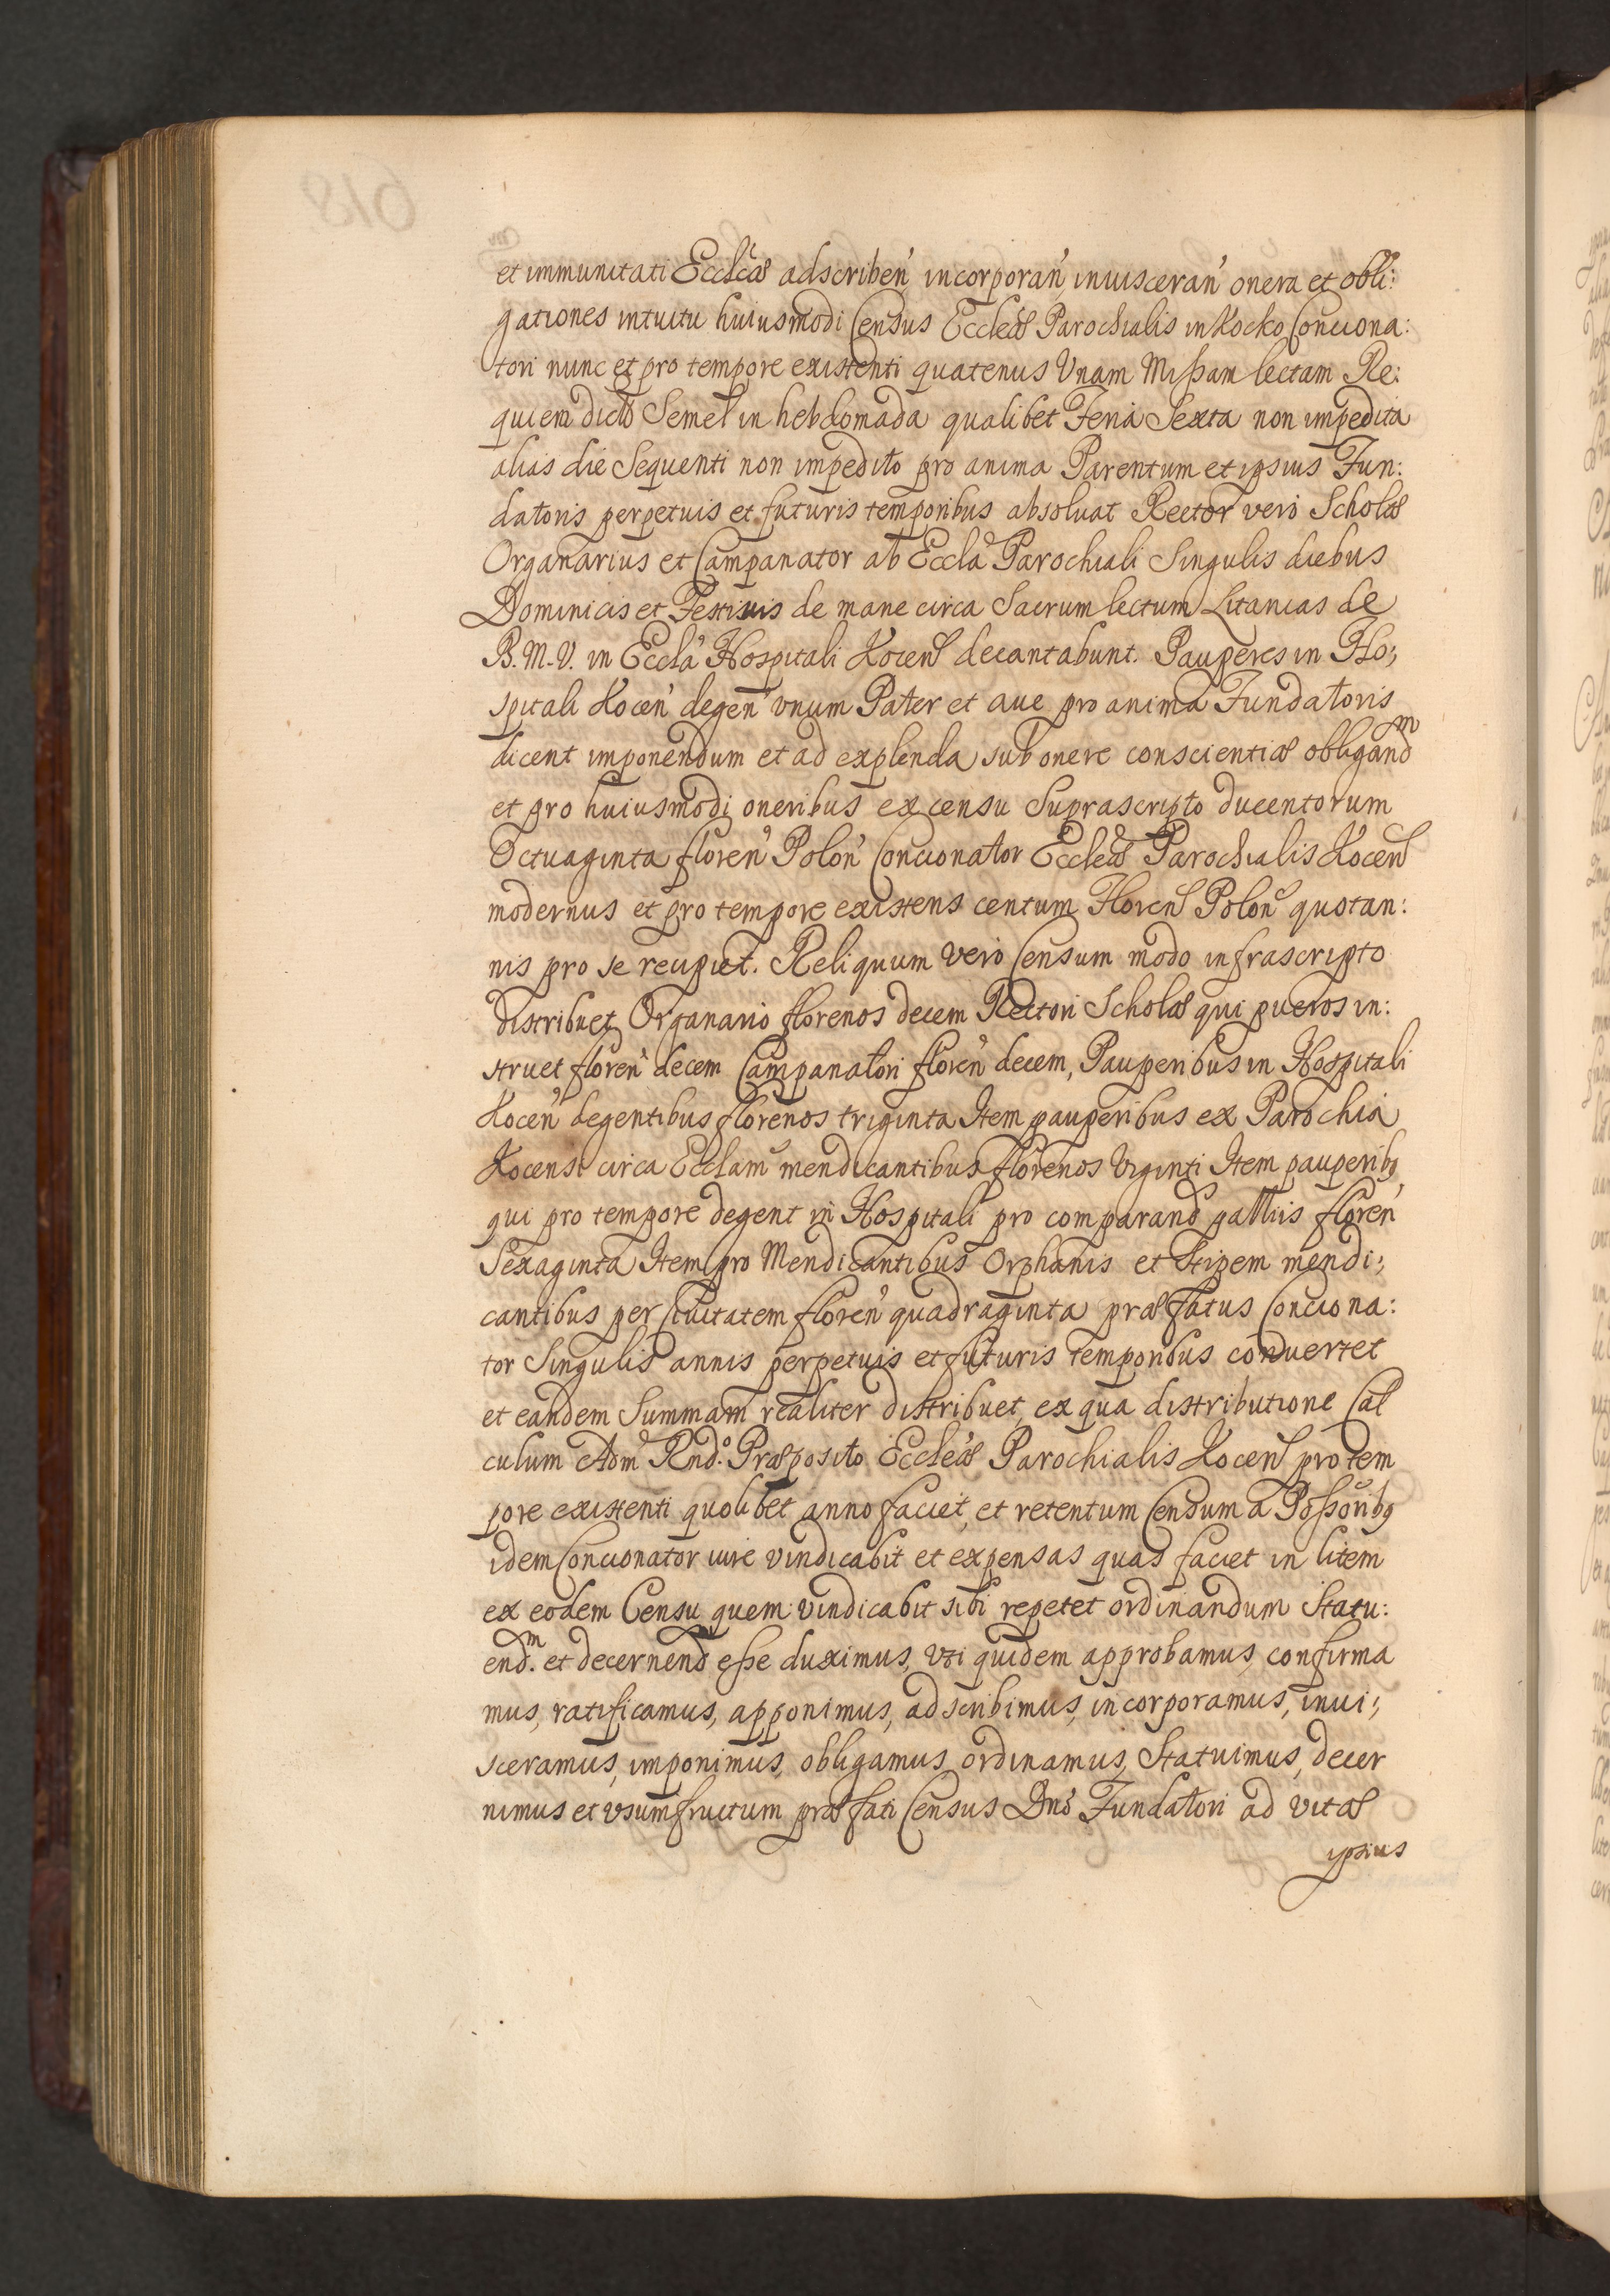 et immunitati Eccleæ adscriben̕ incorporan̕ inuisceran̕ onera et obli:
gationes intuitu huiusmodi Census Eccleæ Parochialis in Kocko Conciona:
tori nunc et pro tempore existenti quatenus Vnam Mißam lectam Re:
quiem dictā Semel in hebdomada qualibet Feria Sexta non impedita
alias die Sequenti non impedito pro anima Parentum et ipsius Fun:
datoris perpetuis et futuris temporibus absoluat Rector vero Scholæ
Organarius et Campanator ab Eccla Parochiali Singulis diebus
Dominicis et Festiuis de mane circa Sacrum lectum Litanias de
B. M. V. in Eccla Hospitali Kocen decantabunt. Pauperes in Ho:
spitali Kocen̕ degen̕ vnum Pater et aue pro anima Fundatoris
dicent imponendum et ad explenda sub onere conscientiæ obligandm
et pro huiusmodi oneribus ex censu Suprascripto ducentorum
Octuaginta floren̕ Polon̕ Concionator Eccleæ Parochialis Kocen
modernus et pro tempore existens centum Floren Polon quotan:
nis pro se recipiet. Reliquum vero Censum modo infrascripto
distribuet Organario florenos decem Rectori Scholæ qui pueros in:
struet floren̕ decem Campanatori floren̕ decem, Pauperibus in Hospitali
Kocen̕ degentibus florenos triginta Item pauperibus ex Parochia
Kocensi circa Ecclam mendicantibus florenos Viginti Item pauperibq
qui pro tempore degent in Hospitali pro comparand pallijs floren̕
Sexaginta Item pro Mendicantibus Orphanis et Stipem mendi:
cantibus per Ciuitatem floren̕ quadraginta præfatus Conciona:
tor Singulis annis perpetuis et futuris temporibus conuertet
et eandem Summam realiter distribuet, ex qua distributione Cal
culum Adm Rndo. Præposito Eccleæ Parochialis Kocen pro tem
pore existenti quolibet anno faciet, et retentum Censum a Poßoribq
idem Concionator iure vindicabit et expensas quas faciet in litem
ex eodem Censu quem vindicabit sibi repetet ordinandum Statu:
endm. et decernend eße duximus, vti quidem approbamus, confirma
mus, ratificamus, apponimus, adscribimus, incorporamus, inui:
sceramus, imponimus, obligamus, ordinamus, Statuimus, decer
nimus et vsumfructum præfati Census Dno Fundatori ad vitæ
ipsius